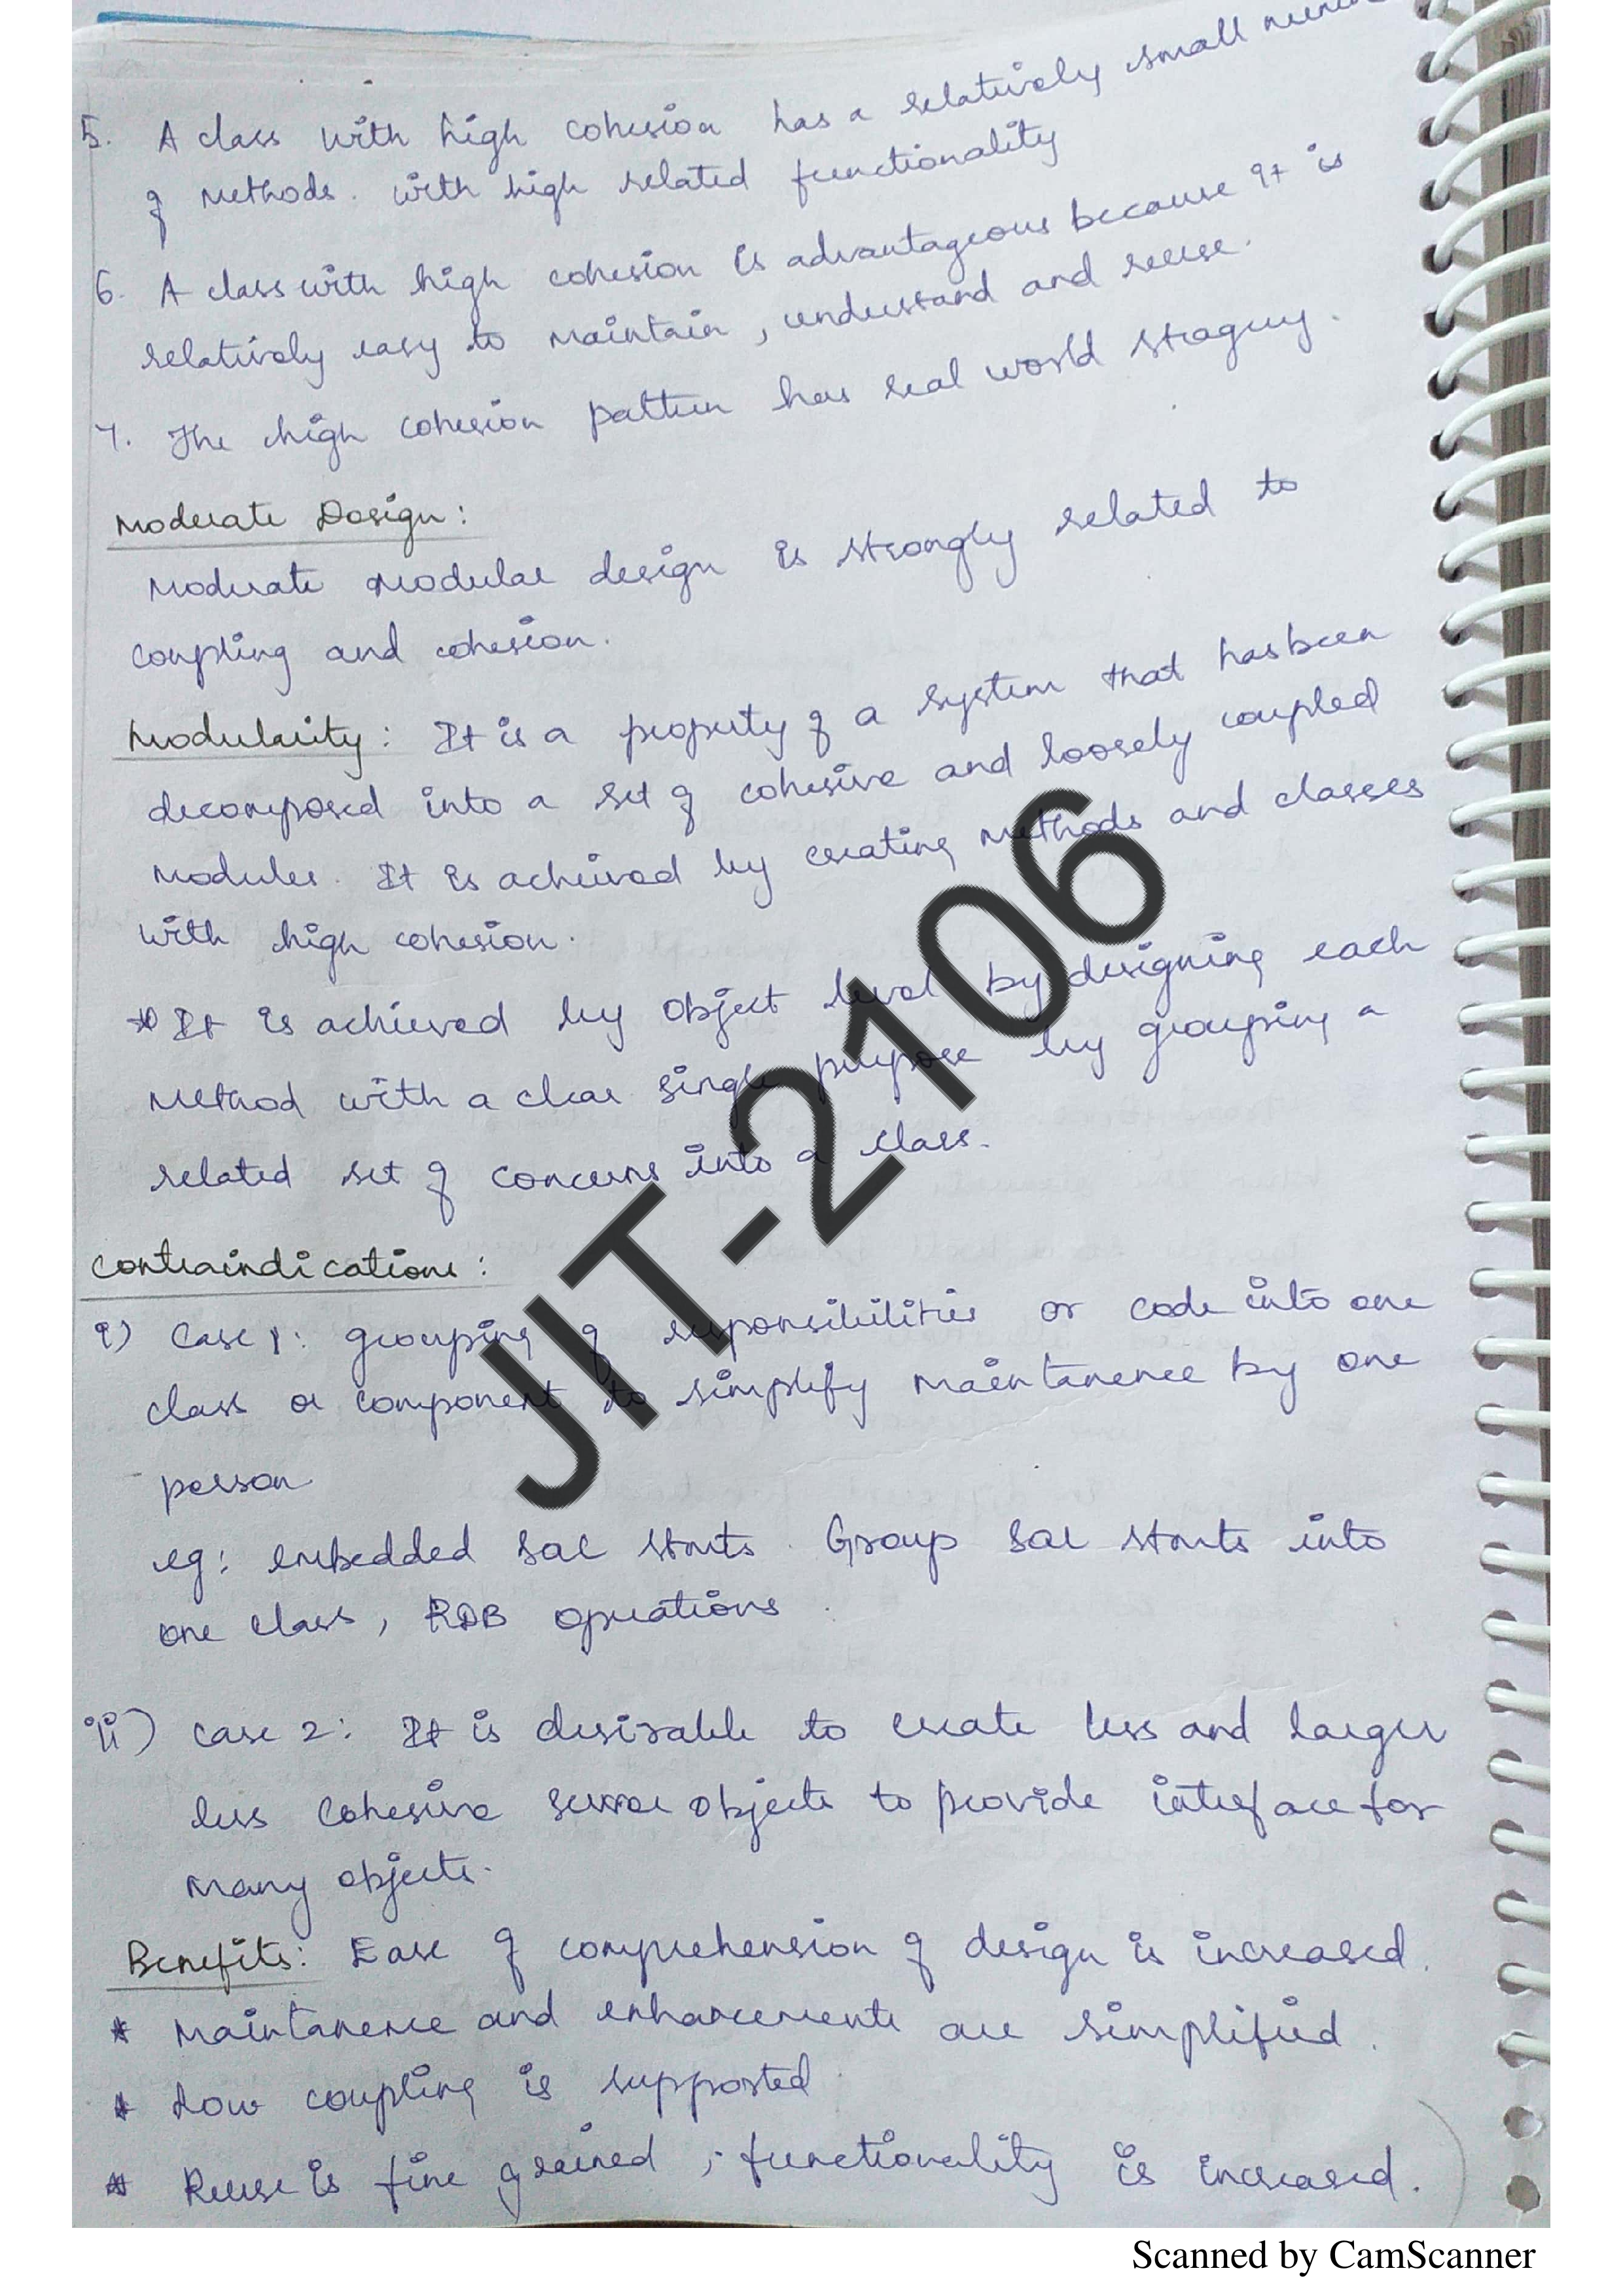 5. A class with high cohesion has a relatively small
of methods. with high related functionality
6. A class with high cohesion is advantageous because it is
relatively easy to maintain, understand and reuse.
7. The high cohesion pattern has real world
Moderate Design:
Moderate modular design is strongly related to
coupling and cohesion.
Modularity: It is a property of a system that has been
decomposed into a set of cohesive and loosely coupled
modules. It is acheived by creating methods and classes
with high cohesion.
* It is achieved by object level by designing each
method with a clear single purpose by grouping a
related set of concerns into a class.
Contraindications:
i) Case 1: grouping of responsibilities or code into one
class or component to simplify maintanence by one
person
eg: embedded Group into
one class, RDB operations.
ii) case 2: It is desirable to create less and larger
less cohesive objects to provide interface for
many objects.
Benefits: Ease of comprehension of design is increased.
* Maintanence and enhancements are simplified.
* Low coupling is supported
* Reuse is fine grained, functionality is increased.
JIT-2106
Scanned by CamScanner